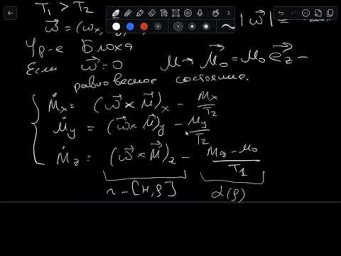 T₁ > T₂
ω⃗ = (ωₓ, |ω⃗| =
Ур-е Блоха
Если ω⃗ = 0 M → M⃗₀ = M₀ e⃗_z –
равновесное состояние.
Ṁₓ = (ω⃗ × M⃗)ₓ – Mₓ/T₂
Ṁ_y = (ω⃗ × M⃗)_y – M_y/T₂
Ṁ_z = (ω⃗ × M⃗)_z – (M_z – M₀)/T₁
~ – [H, ρ] α(ρ)